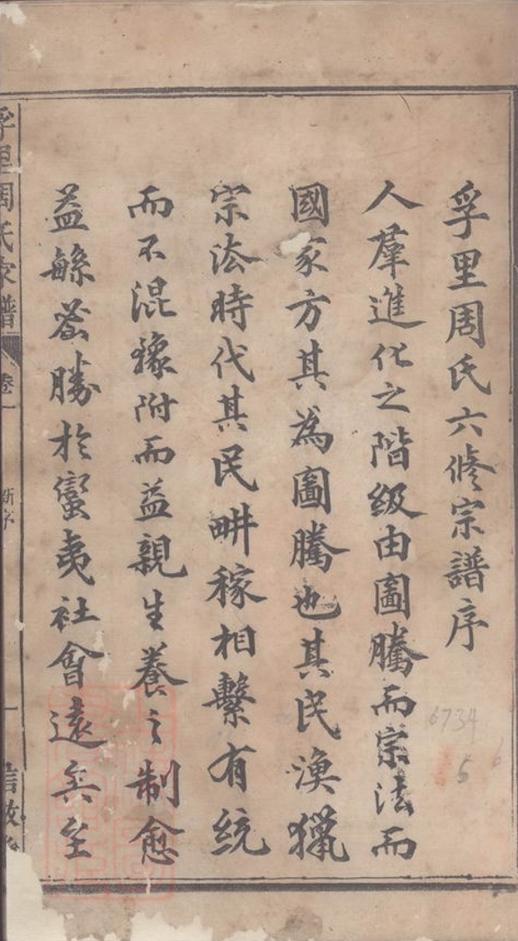 孚里周氏六修宗譜序
人羣進化之階級由圖騰而宗法而
國家方其為圖騰也其民漁獵
宗法時代其民畊稼相繫有統
而不混條附而益親生養之制愈
益緐茖勝於蠻夷社會遠矣至
孚里周氏家譜 卷一 新序 一
6734
5